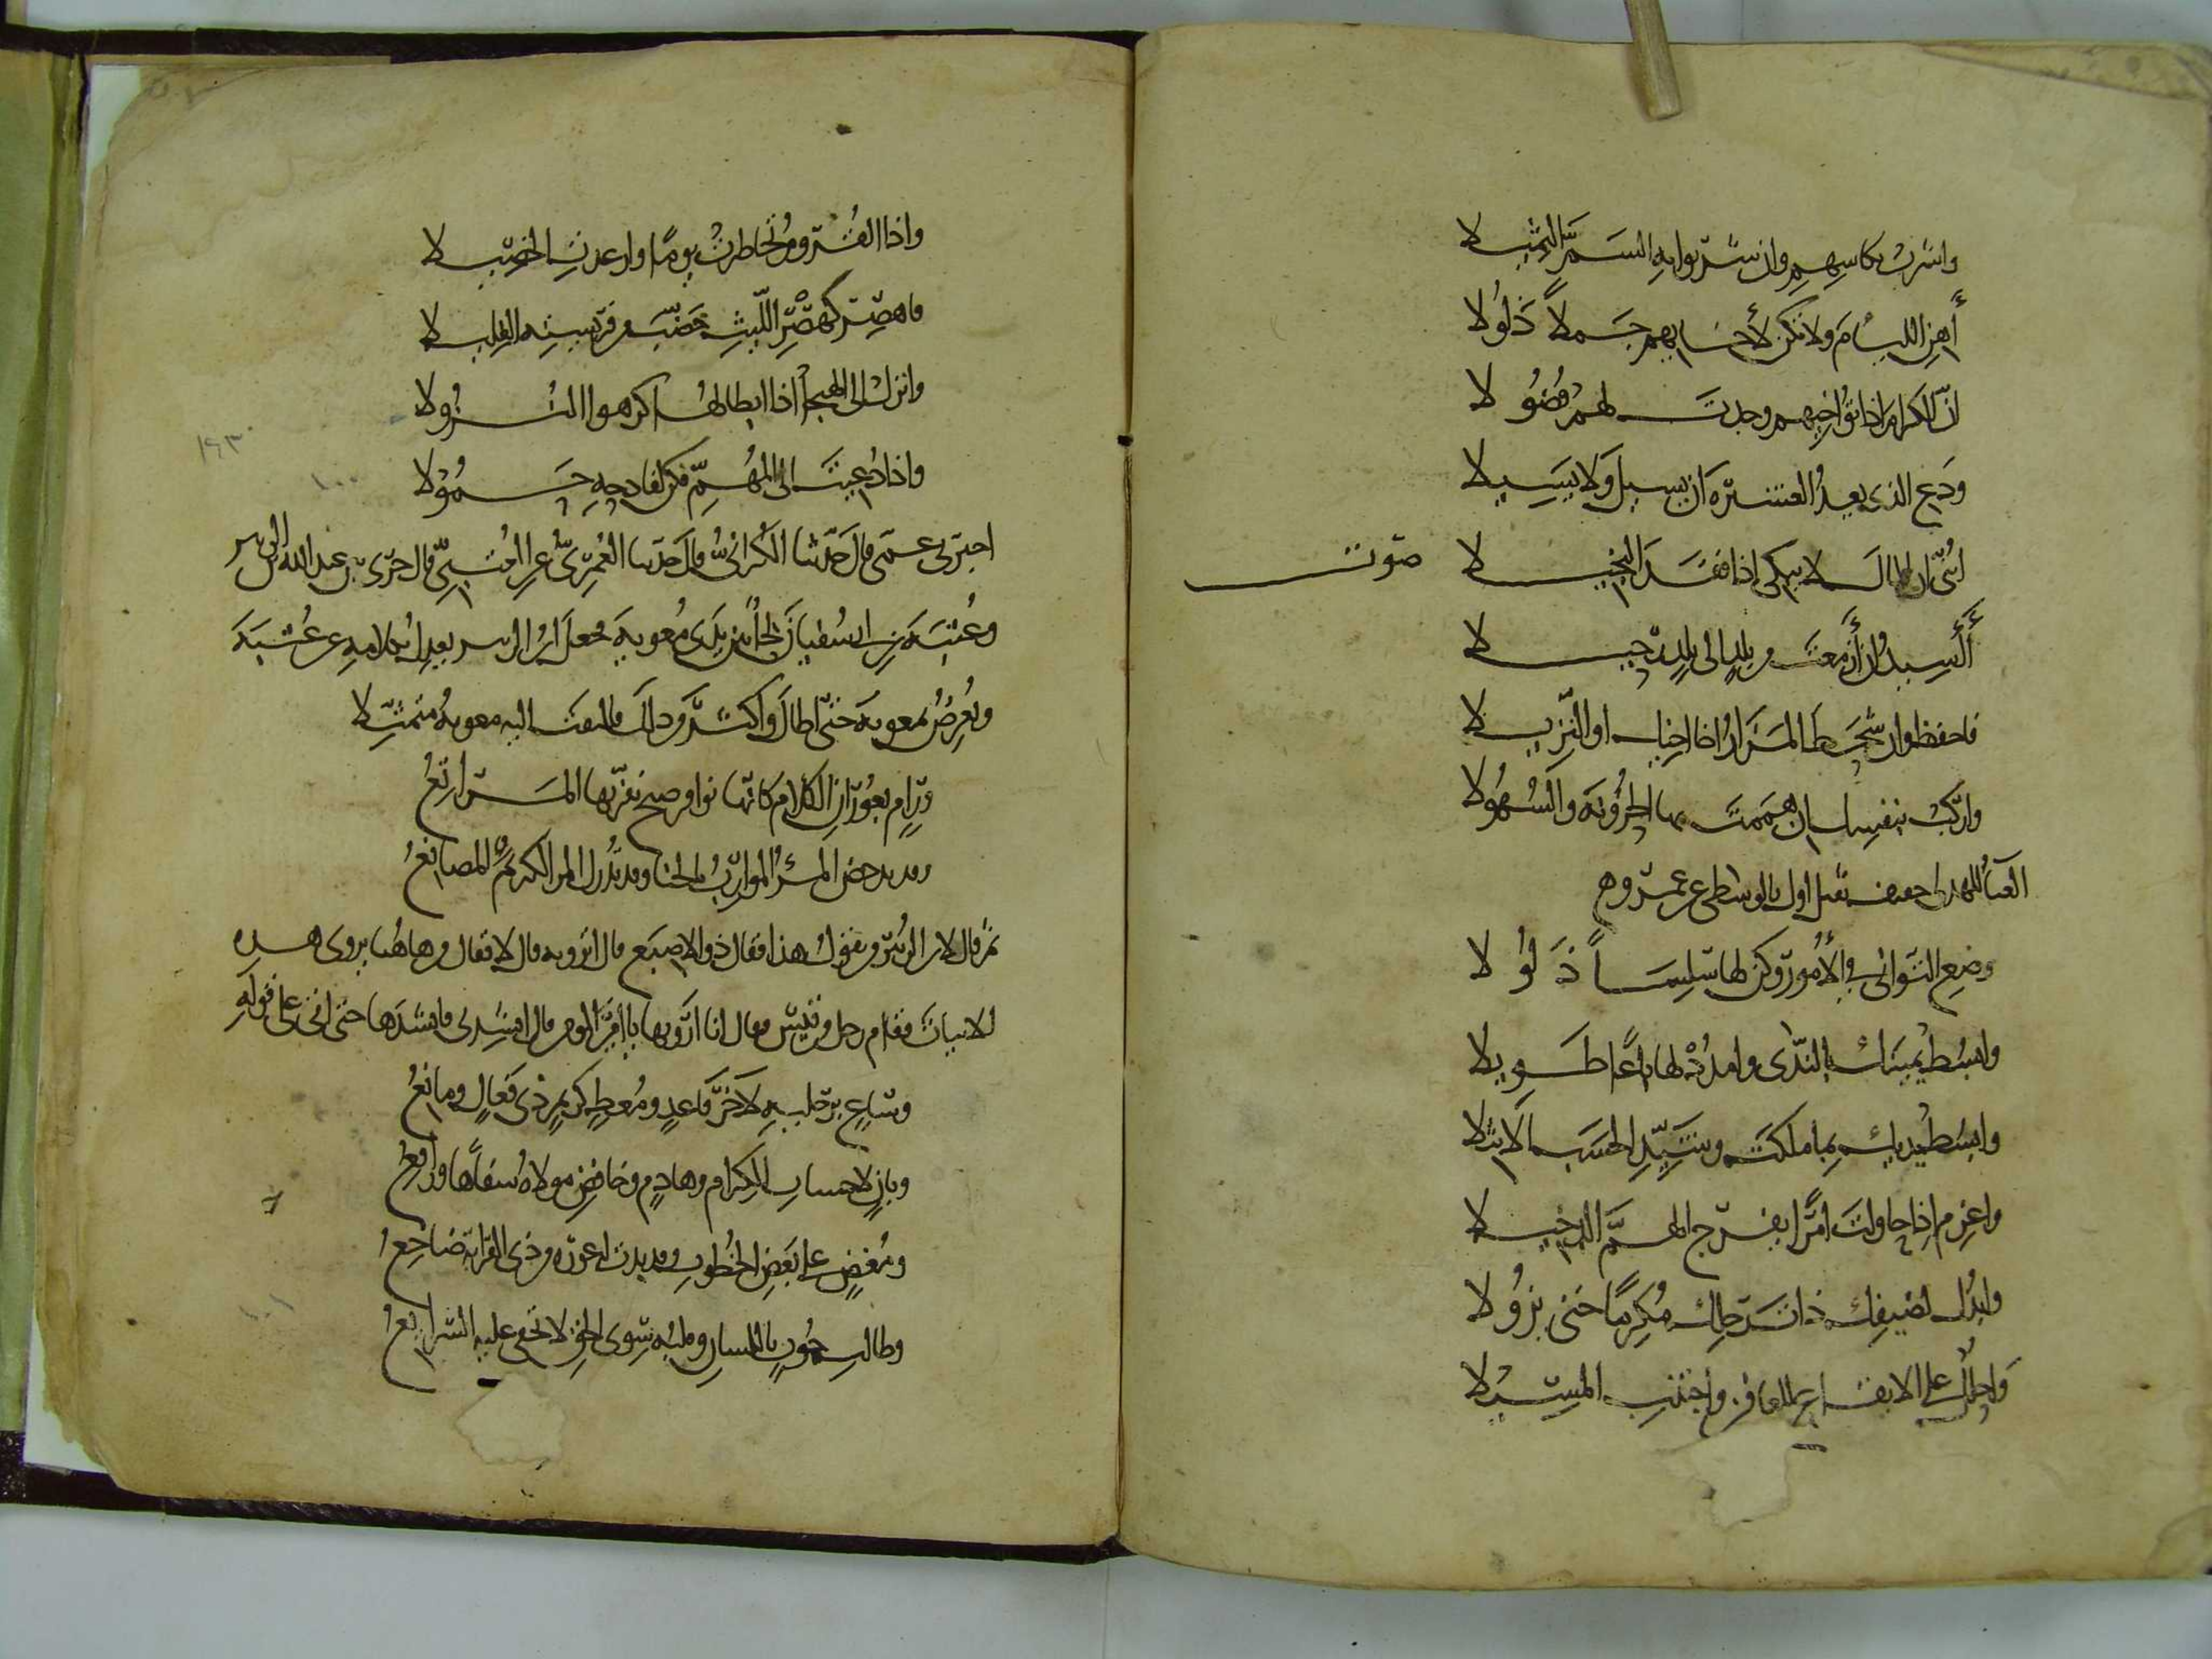 واشرب بكاسهم وان شربوا به السم الثميلا
أهن اللئام ولا تكن لأخائهم جملاً ذلولا
ان الكرام اذا تواخيهم وجدت لهم فضولا
ودع الذي يعد العشيرة ان يسيل ولا يسيلا
ابنى ان المال لا يبكي اذا فقد البخيلا
صوت
أأسيد ان أزمعت من بلد الى بلد رحيلا
فاحفظ وان شحط المزار اخا اخيك او الزميلا
واركب بنفسك ان هممت بها الحزونة والسهولا
الغناء للهذلي خفيف ثقيل اول بالوسطى عن عمرو وهو
وضع التواني في الأمور وكن لها سلساً ذلولا
وابسط يمينك بالندى وامدد لها باعاً طويلا
وابسط يديك بما ملكت وشيد الحسب الاثيلا
واعزم اذا حاولت امراً يفرج الهم الدخيلا
وابذل لضيفك ذات رحلك مكرماً حتى يزولا
واحلل على الايفاع للعافين واجتنب المسيلا
واذا القروم تخاطرت يوماً وارعدت الخصيلا
فاهصر كهصر الليث خضب من فريسته التليلا
وانزل الى الهيجا اذا ابطالها كرهوا النزولا
واذا دعيت الى المهم فكن لفادحه حمولا
اخبرني عمي قال حدثنا الكراني قال حدثنا العمري عن العتبي قال جرى بين عبد الله بن الزبير
وعتبة بن ابي سفيان لحاء بين يدي معوية فجعل ابن الزبير يعدل بكلامه عن عتبة
ويعرض بمعوية حتى اطال واكثر من ذلك فالتفت اليه معوية متمثلا
ورام بعوران الكلام كأنها نوافر صبح نفرتها المراتع
وقد يدحض المرء الموارب بالخنا وقد تدرك المرء الكريم المصانع
ثم قال لابن الزبير من يقول هذا فقال ذو الاصبع قال اترويه قال لا فقال من هاهنا يروي هذه
الابيات فقام رجل من قيس فقال انا ارويها يا امير المؤمنين فقال انشدني فانشدها حتى اتى على قوله
وساع برجليه لآخر قاعد ومعط كريم ذي فعال ومانع
وبان لاحساب الكرام وهادم وخافض مولاه سفاهاً ورافع
ومغض على بعض الخطوب وقد بدت له عورة من ذي القرابة ضاجع
وطالب حوب باللسان وقلبه سوى الحق لا تخفى عليه الشرائع